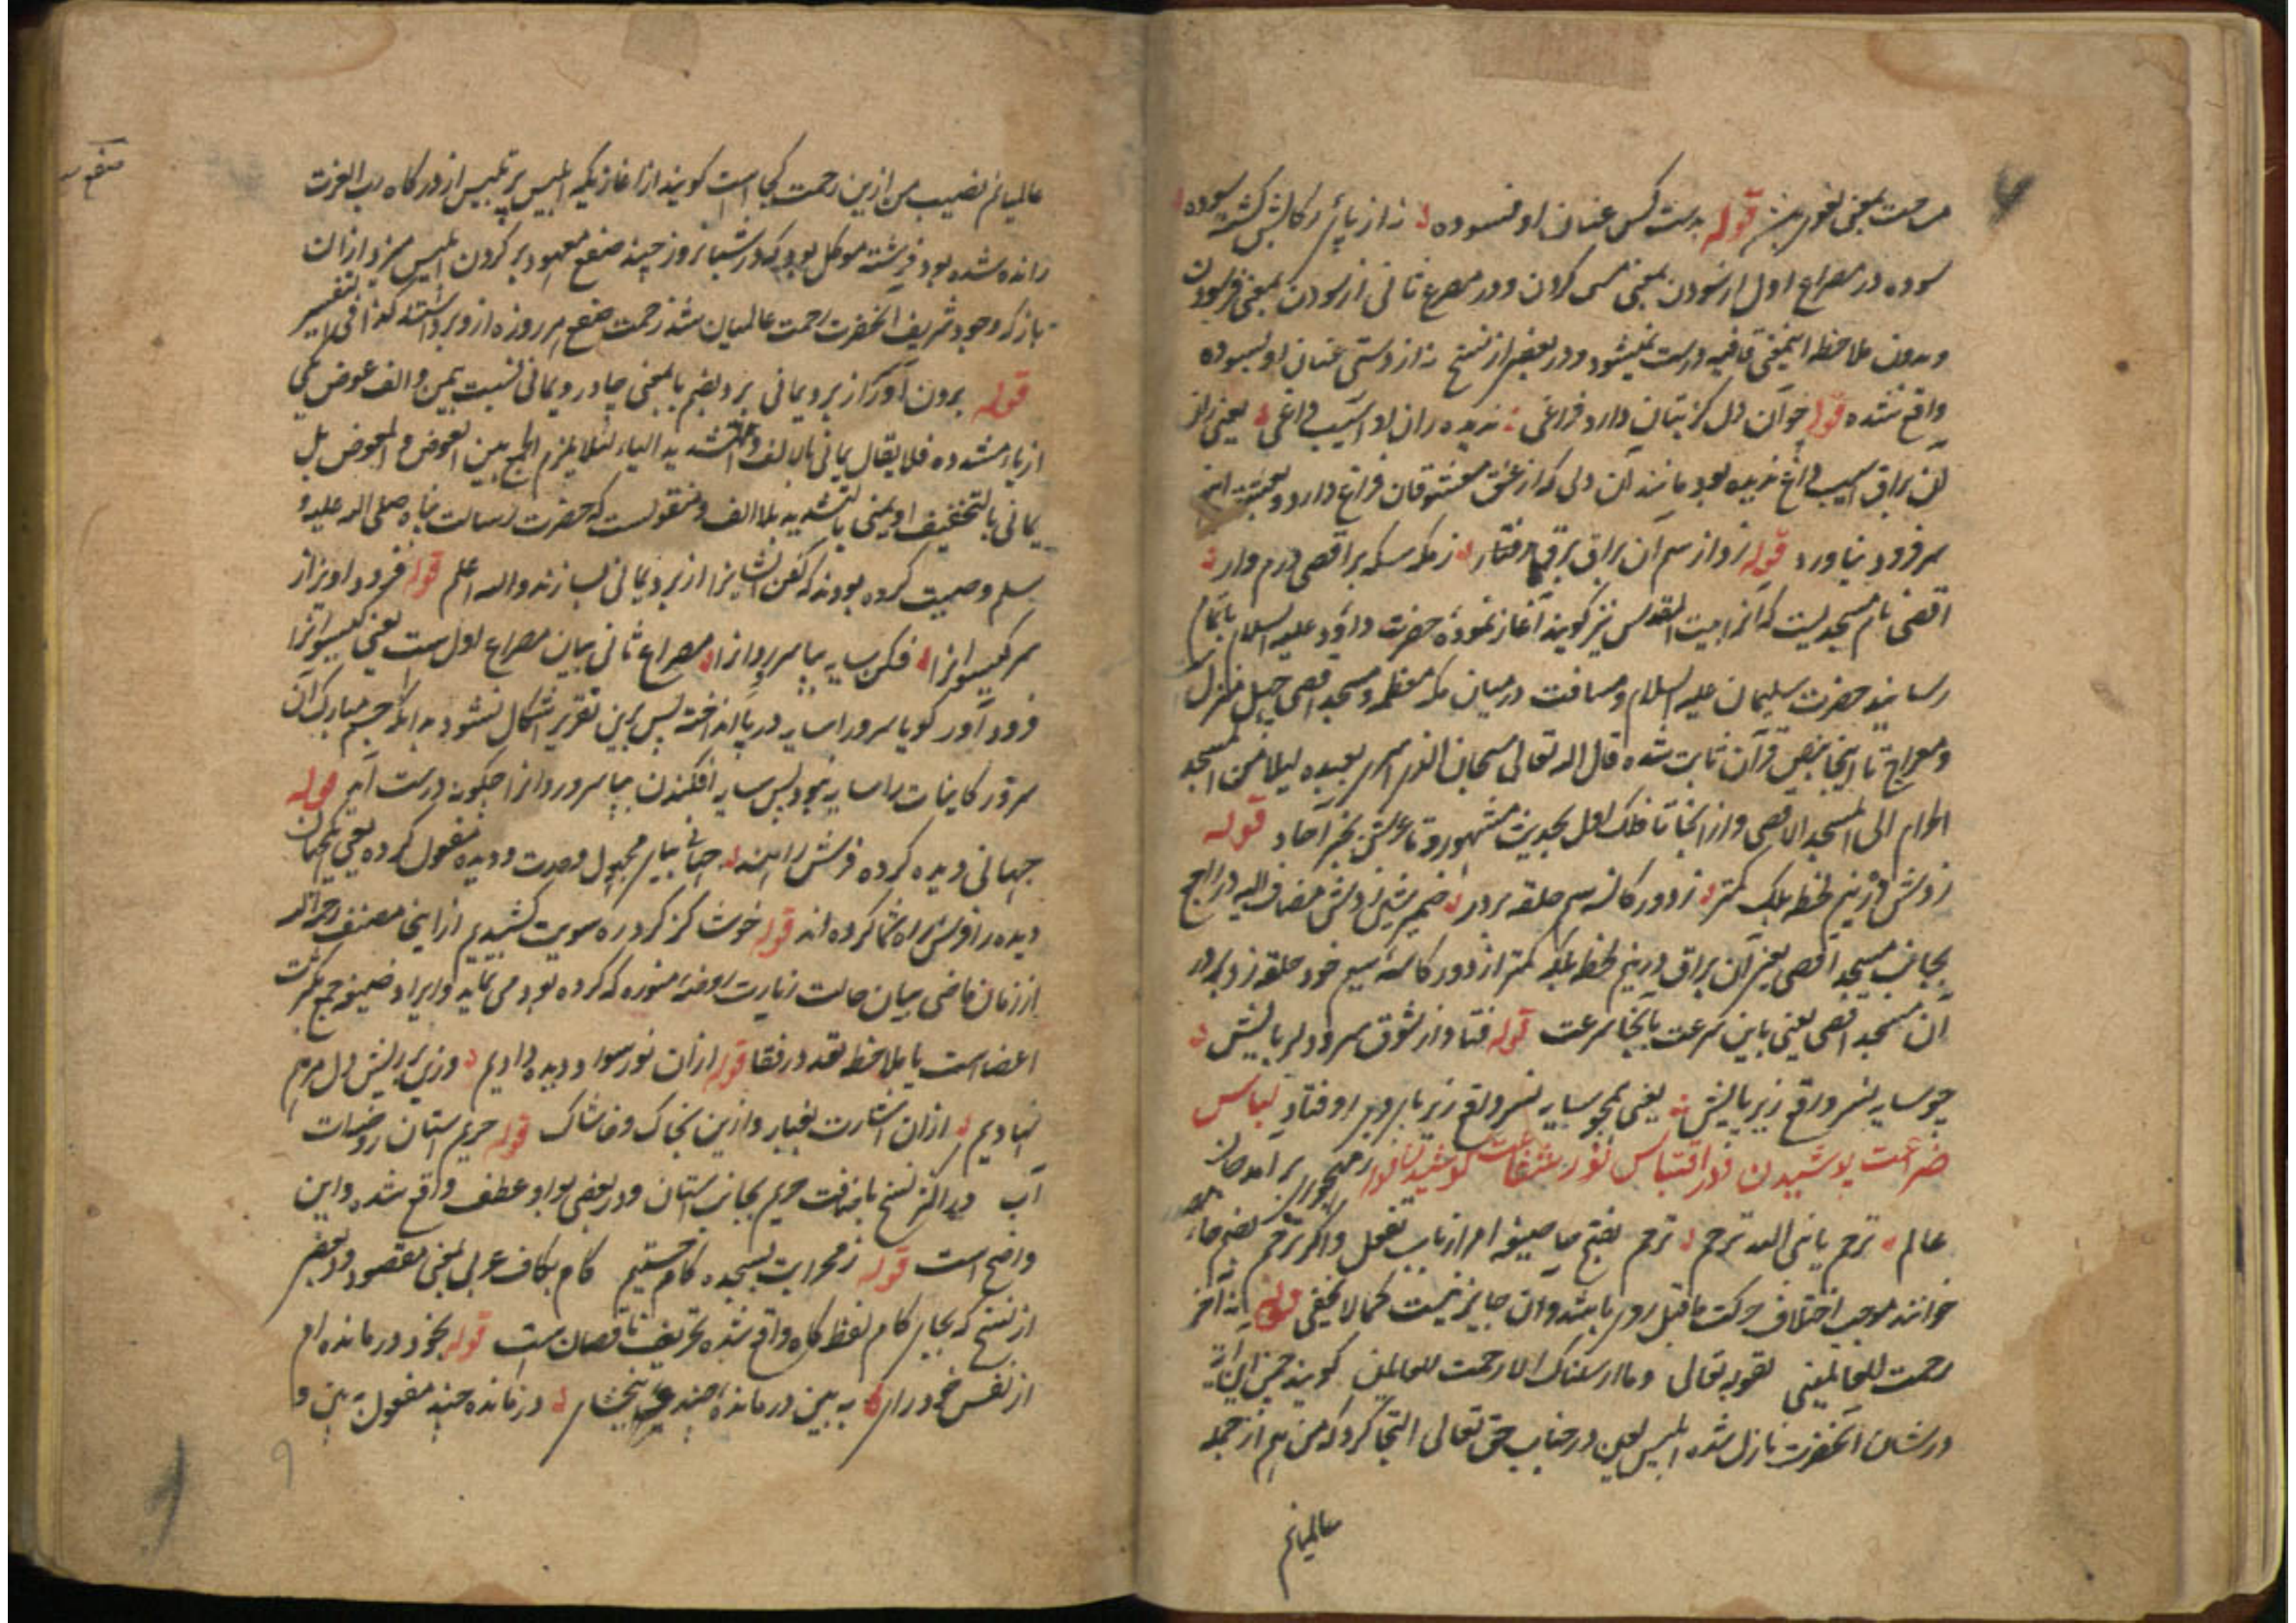 قوله بدست کس عنان او نسوده نه از پای رکابش گشته سوده
سوده در مصراع اول از سودن بمعنی مس کردن و در مصرع ثانی از سودن بمعنی فرسودن
و بدون ملاحظه اینمعنی قافیه درست نمیشود و در بعضی از نسخ نه از دستی عنان او بسوده
واقع شده قوله چو آن دل کز بتان دارد فراغی ندیده ران او آسیب داغی یعنی ران
آن براق آسیب داغ ندیده بود مانند آن دلی که از عشق معشوقان فراغ دارد و بعشق
سر فرود نیاورد قوله زد از سم آن براق برق رفتار ز مکه سکه بر اقصی درم وار
اقصی نام مسجدیست که آنرا بیت المقدس نیز گویند آغاز نموده حضرت داود علیه السلام باتمام
رسانید حضرت سلیمان علیه السلام و مسافت درمیان مکه معظمه و مسجد اقصی چهل منزل
و معراج تا اینجا بنص قرآن ثابت شده قال الله تعالی سبحان الذی اسری بعبده لیلا من المسجد
الحرام الی المسجد الاقصی و از انجا تا فلک اول بحدیث مشهور و تا عرش بخبر آحاد قوله
زدش در نیم لحظه بلکه کمتر ز دور کاسه سم حلقه بر در
بجانب مسجد اقصی یعنی آن براق در نیم لحظه بلکه کمتر از دور کاسه سم خود حلقه زد بر در
آن مسجد اقصی یعنی باین سرعت بآنجا سرعت قوله فتاد از شوق سرو دلربایش
چو سایه نسر واقع زیر پایش یعنی همچو سایه نسر واقع زیر پای او فتاد لباس
ضراعت پوشیدن و در اقتباس نور شفاعت کوشیدن قوله ز مهجوری برآمد جان
عالم ترحم یا نبی الله ترحم ترحم بفتح حا صیغه امر از باب تفعل و اگر ترحم بضم حا
خوانند موجب اختلاف حرکت ماقبل روی باشد و آن جایز نیست کما لا یخفی قوله نه آخر
رحمت للعالمینی لقوله تعالی وما ارسلناک الا رحمت للعالمین گویند چون این آیه
در شان آنحضرت نازل شد ابلیس لعین در جناب حق تعالی التجا کرد که من هم از جمله
عالمیانم
عالمیانم نصیب من ازین رحمت کجا است گویند از آغازیکه ابلیس پر تلبیس از درگاه رب العزت
رانده شده بود فرشته موکل بود که در شبانروز چند صفع معهود بر گردن ابلیس میزد ازان
باز که وجود شریف آنحضرت رحمت عالمیان شد زحمت صفع هر روزه ازو برداشتند کذا فی التفسیر
قوله برون آور سر از برد یمانی برد بضم با بمعنی چادر و یمانی نسبت بیمن و الف عوض یکی
از یاء مشدده فلا یقال یمانی بالالف والتشدید الیاء لئلا یلزم الجمع بین العوض و المعوض بل
یمانی بالتخفیف او یمنی بالتشدید بلا الف و منقولست که حضرت رسالت پناه صلی الله علیه و
سلم وصیت کرده بودند که کفن ایشانرا از برد یمانی بسازند والله اعلم قوله فرود آویز از
سر گیسوانرا فکن سایه بپا سرو روانرا مصراع ثانی بیان مصراع اول ست یعنی گیسوانرا
فرود آور گویا سرو را سایه در پا انداخته پس برین تقریر اشکال نشود بدانکه جسم مبارک آن
سرور کاینات را سایه نبود پس سایه افکندن بپا سرو روانرا چگونه درست آید قوله
جهانی دیده کرده فرش راهند
دیده را فرش راه شما کرده اند قوله خوشا کز گرد ره سویت کشیدیم از اینجا مصنف رحمه الله
از زمان ماضی بیان حالت زیارت روضه منوره که کرده بود می نماید و ایراد ضمیر جمع
اعضاست یا بملاحظه تعدد رفقا قوله ازان نور سواد دیده دادیم وزین بر ریش دل مرهم
نهادیم ازان اشارت بغبار و ازین بخاک و خاشاک قوله حریم آستان روضه‌ات
آب در اکثر نسخ باضافت حریم بجانب آستان و در بعضی بواو عطف واقع شده و این
واضح است قوله ز محرابت بسجده کام جستیم کام بکاف عربی بمعنی مقصود و در بعضی
از نسخ که بجای کام لفظ گاه واقع شده تحریف ناقصان ست قوله بخود درمانده ام
از نفس خود رای به بین درمانده چند ببخشای درمانده چند مفعول به بین و